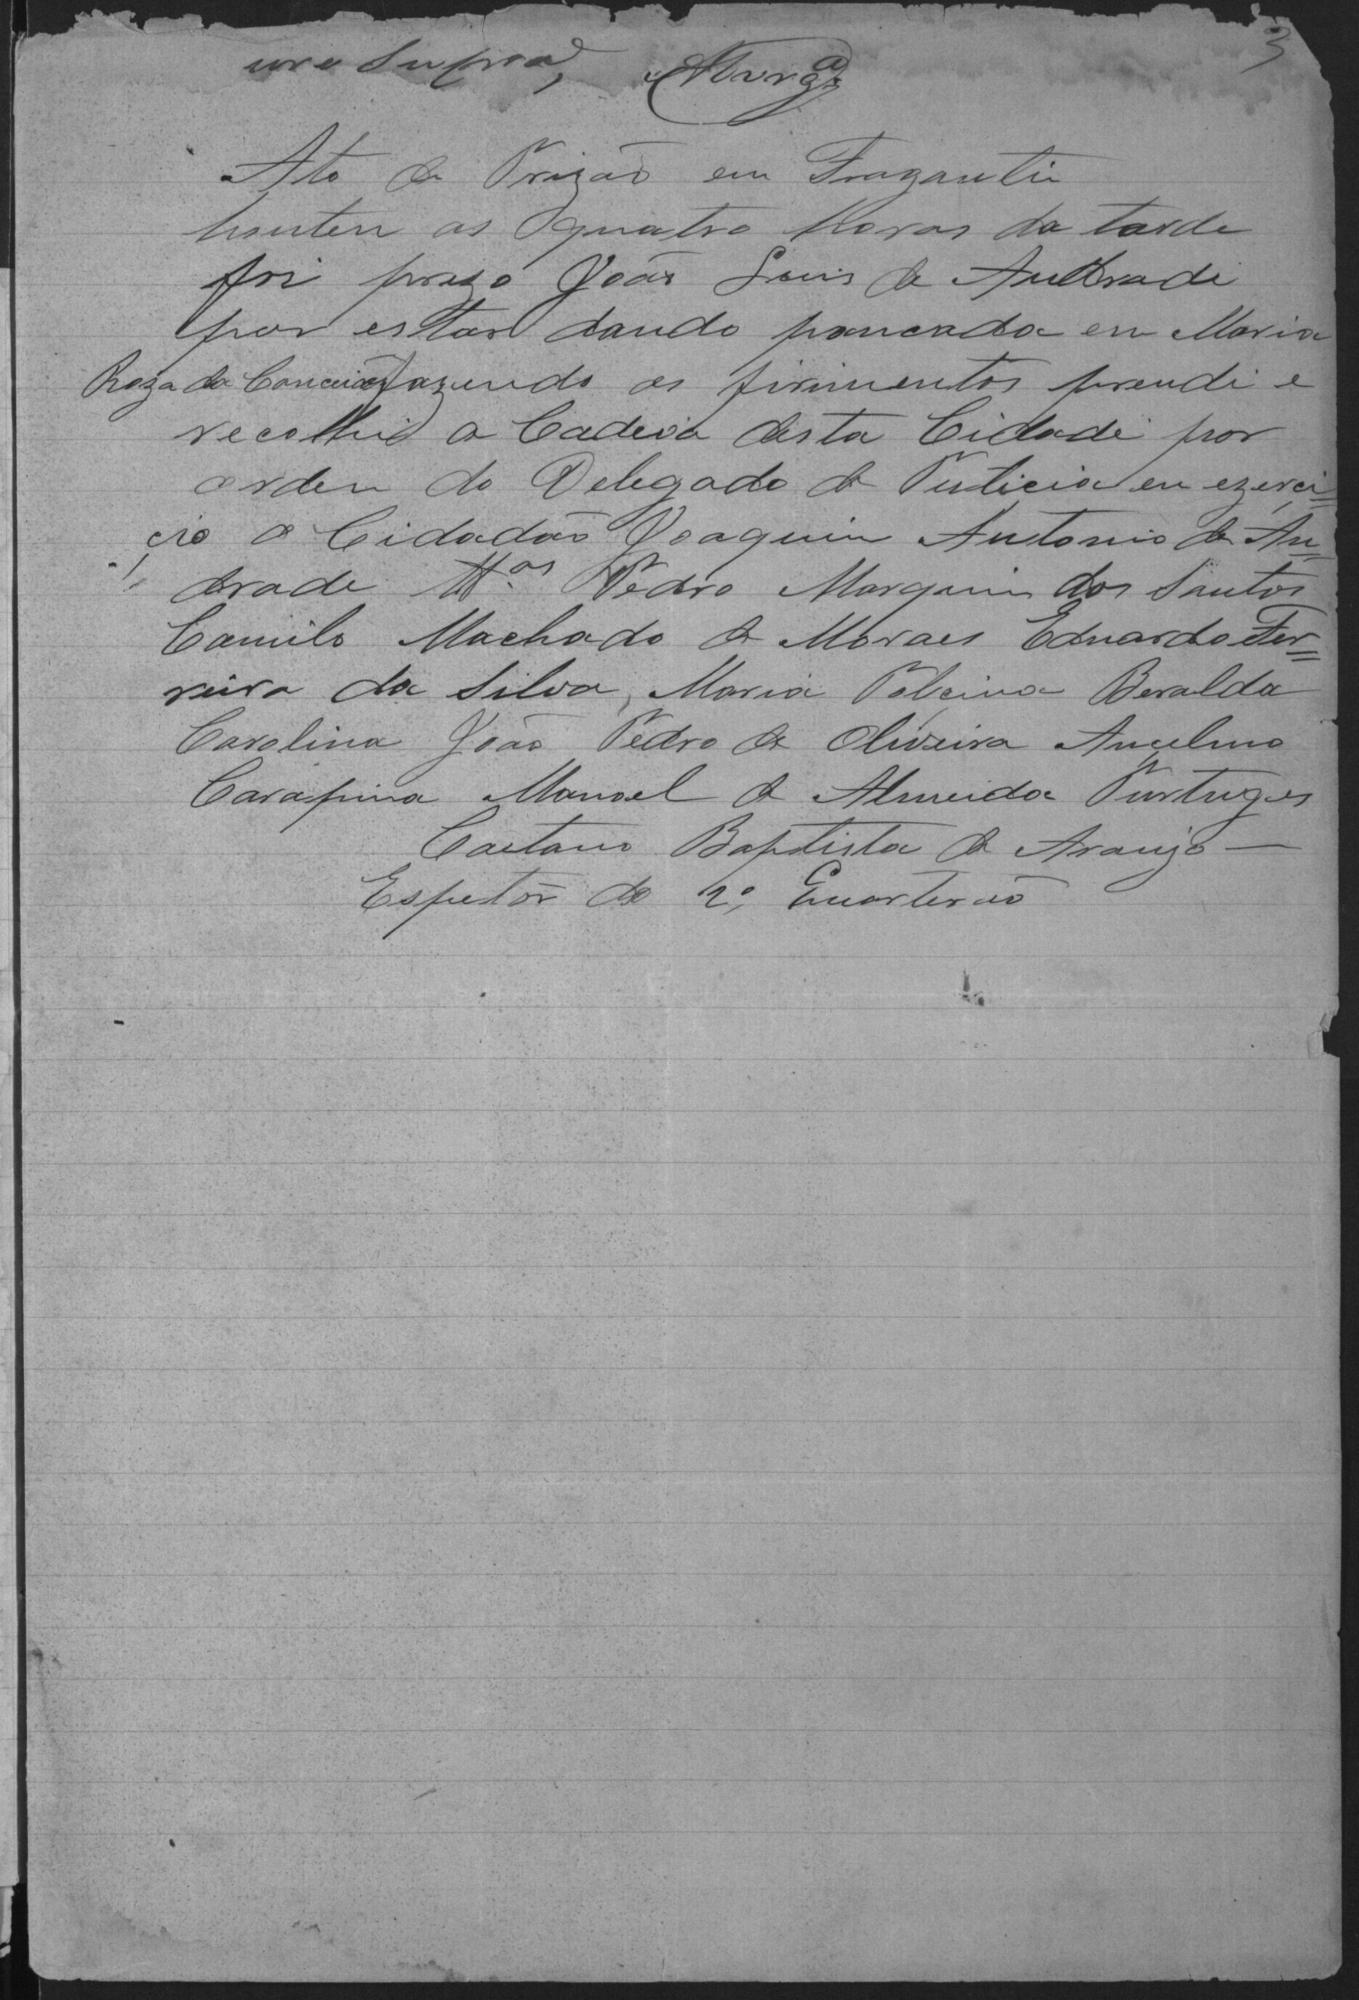 3
ura Supra,
Ato de Prizão em Fragantin
honten as quatro Horas da tarde
foi prezo João Luis de Andrade
por estar dando pancada em Maria
Roza da Conceição fazendo os firimentos prendi e
recolhi a Cadeia desta Cidade por
orden do Delegado de Pulicia en ezerci=
cio o Cidadão Joaquim Antonio de An=
drade Tt.as Pedro Marquin dos Santos
Camilo Machado de Moraes Eduardo Fer=
reira da Silva, Maria Polcina Beralda
Carolina João Pedro de Oliveira Ancelmo
Carapina Manoel de Almeida Purtuges
Caetano Baptista de Araujo —
Espetor do 2º, Quarterão